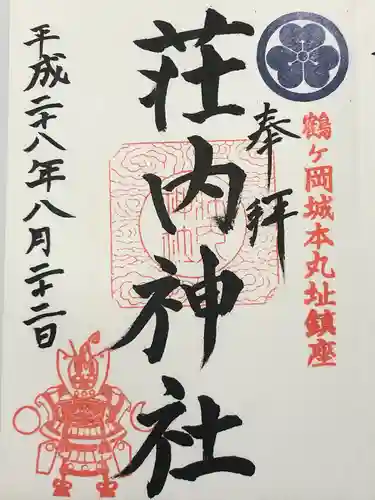 奉拝
鶴ヶ岡城本丸址鎮座
荘内神社
平成二十八年八月二十二日